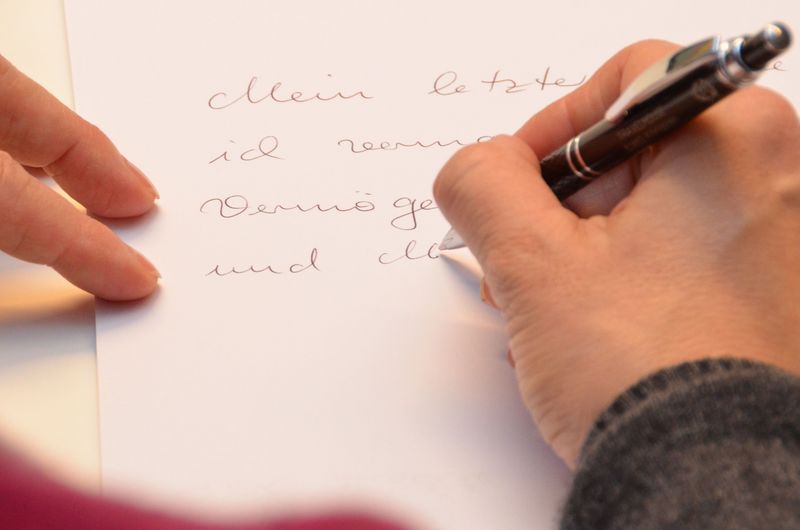 Mein letzter
id verma
Vermöge
und M